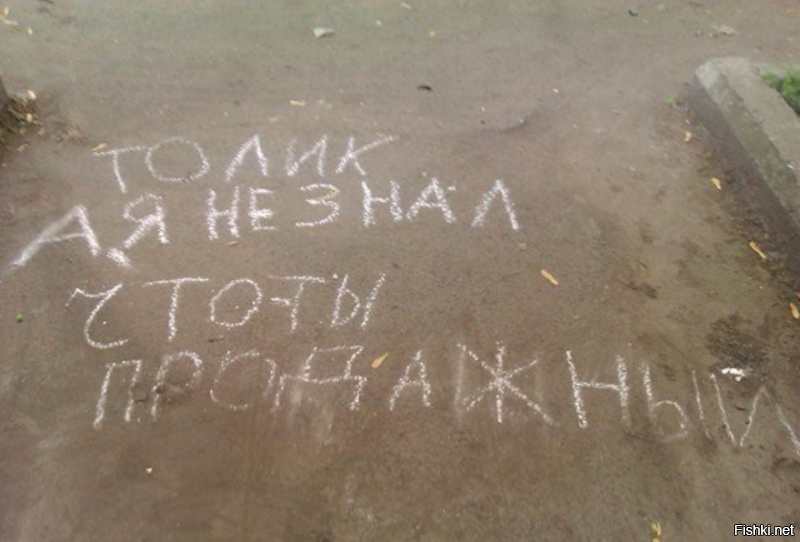 ТОЛИК
А Я НЕ ЗНАЛ
ЧТО-ТЫ
ПРОДАЖНЫЙ
Fishki.net